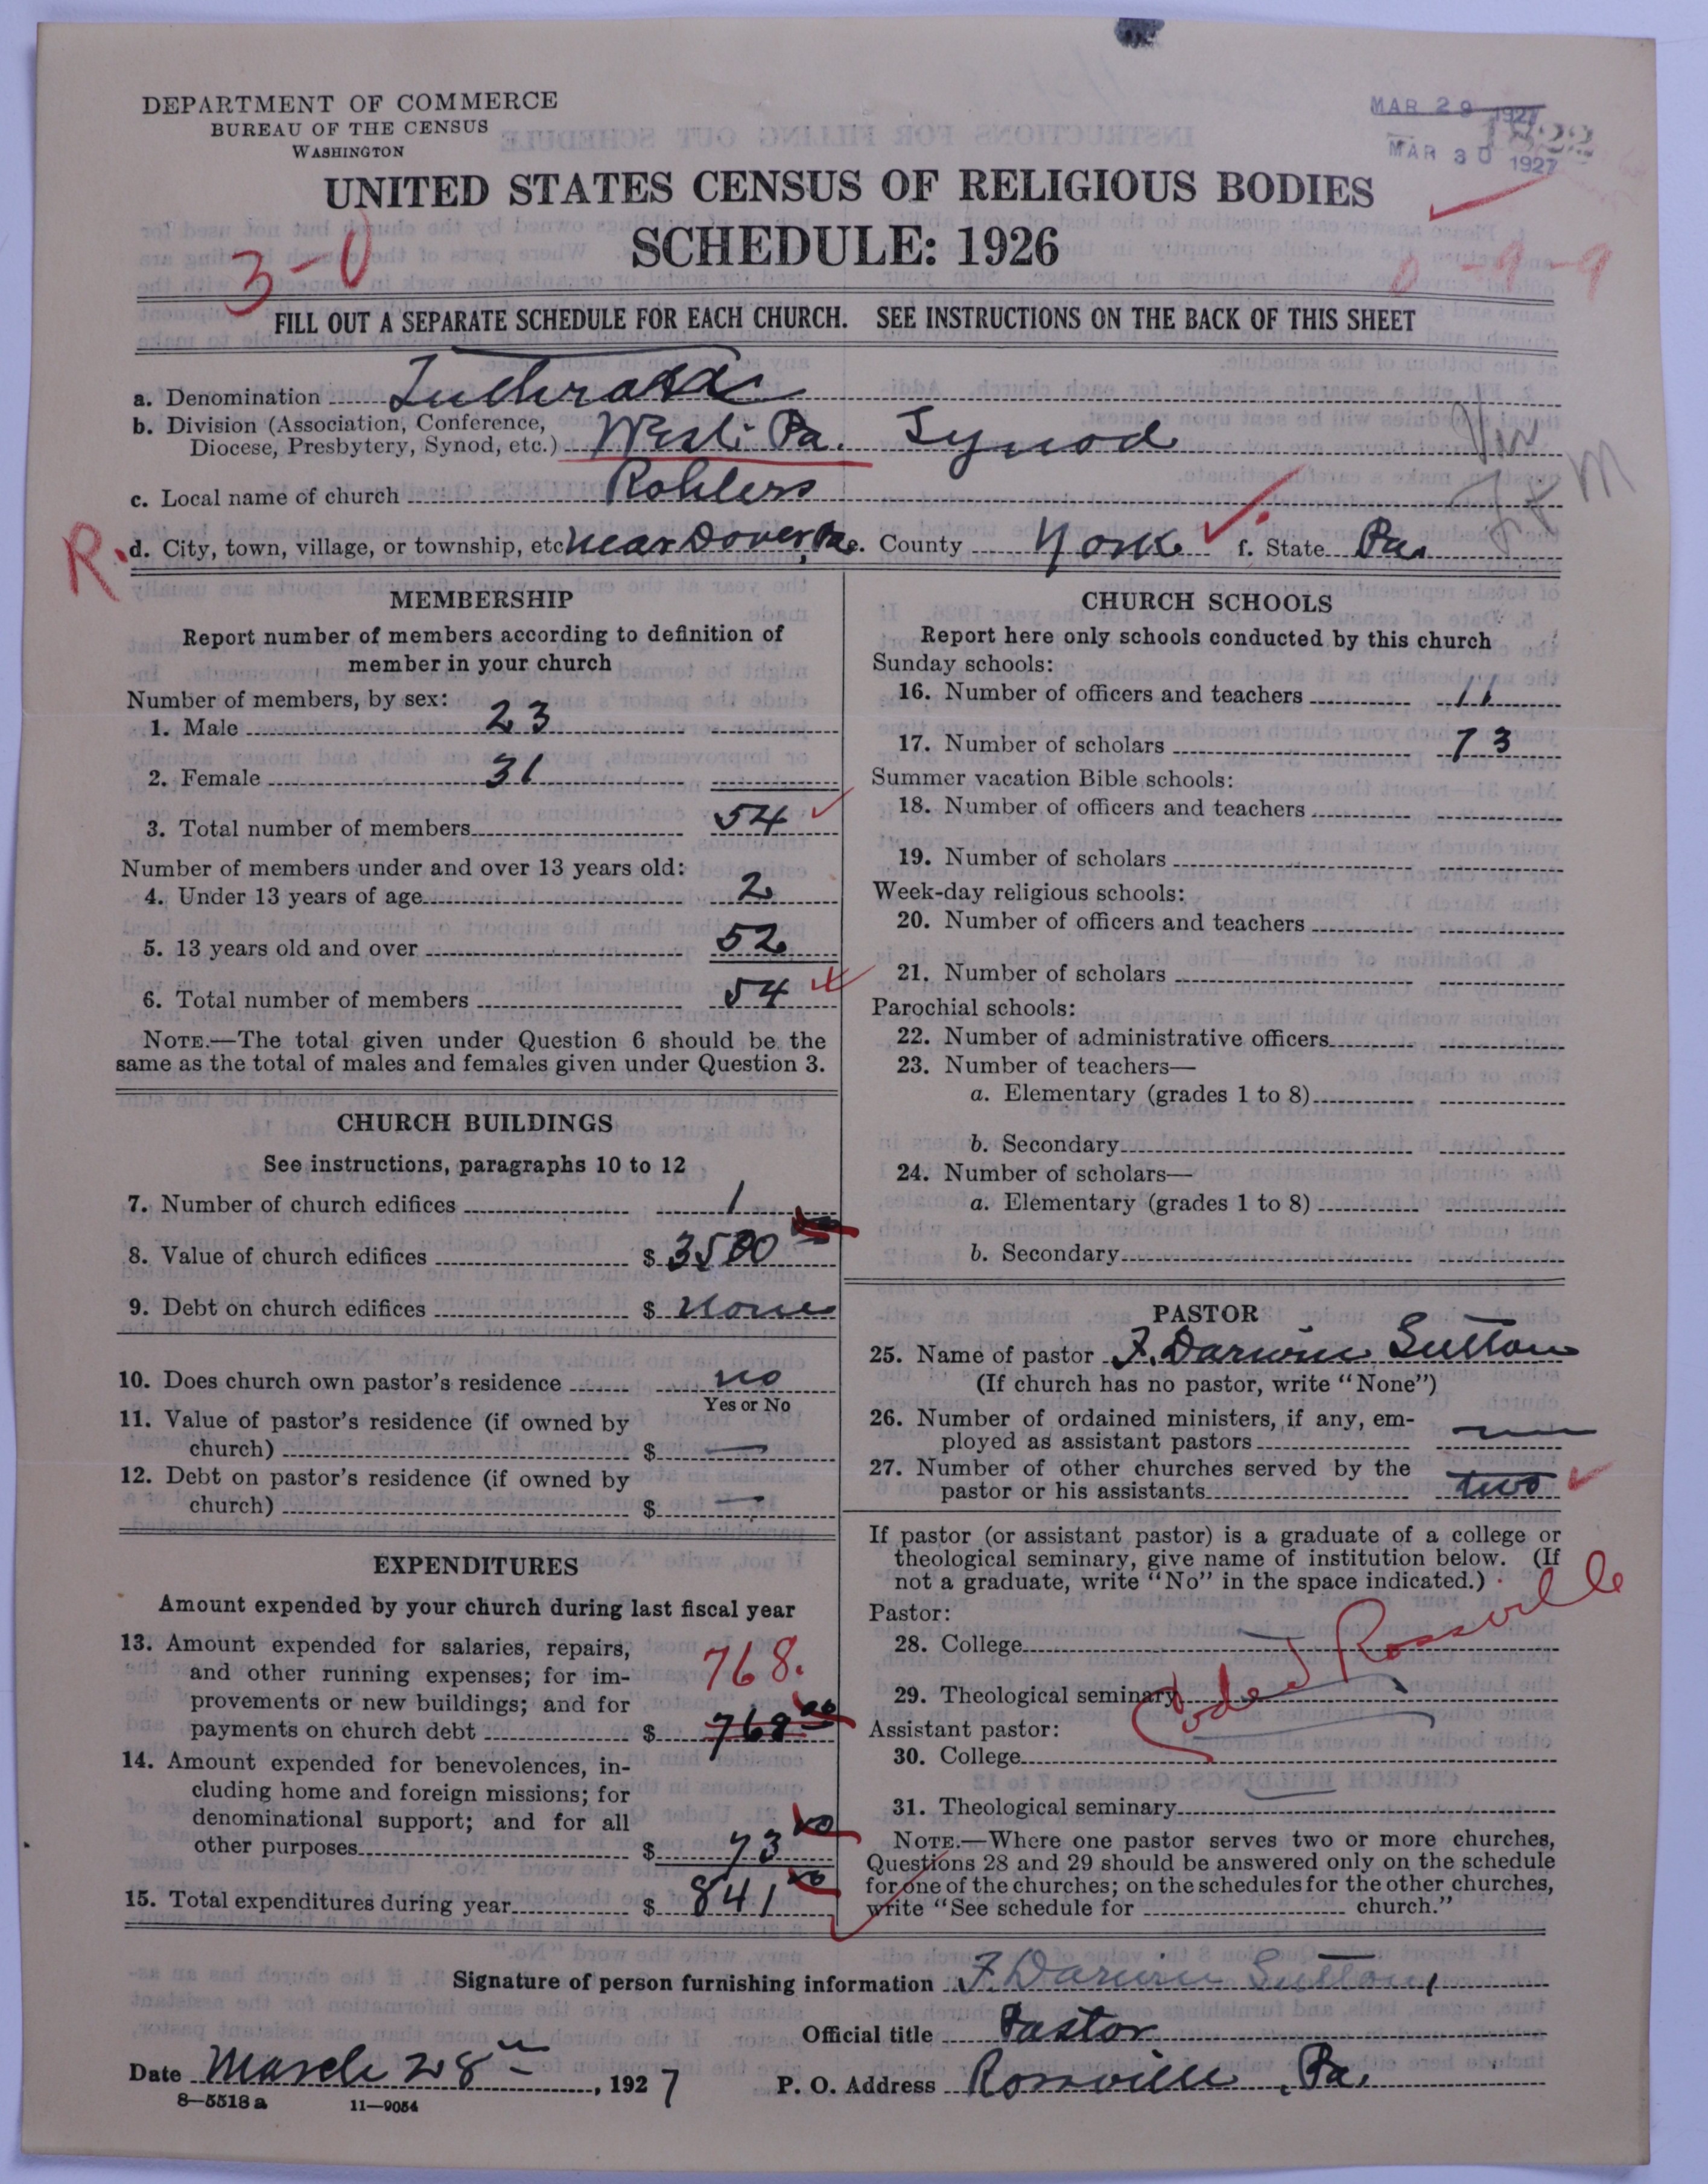 DEPARTMENT OF COMMERCE
BUREAU OF THE CENSUS
WASHINGTON
MAR 29 1927
MAR 30 1927
UNITED STATES CENSUS OF RELIGIOUS BODIES
SCHEDULE: 1926
3-0
0-9-9
FILL OUT A SEPARATE SCHEDULE FOR EACH CHURCH. SEE INSTRUCTIONS ON THE BACK OF THIS SHEET
a. Denomination Lutheran
b. Division (Association, Conference,
Diocese, Presbytery, Synod, etc.) West Pa. Synod
c. Local name of church Rohlers
R. d. City, town, village, or township, etc near Dover, Pa. e. County York f. State Pa.
MEMBERSHIP
Report number of members according to definition of
member in your church
Number of members, by sex:
1. Male 23
2. Female 31
3. Total number of members 54
Number of members under and over 13 years old:
4. Under 13 years of age 2
5. 13 years old and over 52
6. Total number of members 54
NOTE.—The total given under Question 6 should be the
same as the total of males and females given under Question 3.
CHURCH BUILDINGS
See instructions, paragraphs 10 to 12
7. Number of church edifices 1
8. Value of church edifices $ 3500
9. Debt on church edifices $ none
10. Does church own pastor's residence no
Yes or No
11. Value of pastor's residence (if owned by
church) $ —
12. Debt on pastor's residence (if owned by
church) $ —
EXPENDITURES
Amount expended by your church during last fiscal year
13. Amount expended for salaries, repairs,
and other running expenses; for im-
provements or new buildings; and for
payments on church debt $ 768.00
768.
14. Amount expended for benevolences, in-
cluding home and foreign missions; for
denominational support; and for all
other purposes $ 73 00
15. Total expenditures during year $ 841 00
CHURCH SCHOOLS
Report here only schools conducted by this church
Sunday schools:
16. Number of officers and teachers 11
17. Number of scholars 73
Summer vacation Bible schools:
18. Number of officers and teachers
19. Number of scholars
Week-day religious schools:
20. Number of officers and teachers
21. Number of scholars
Parochial schools:
22. Number of administrative officers
23. Number of teachers—
a. Elementary (grades 1 to 8)
b. Secondary
24. Number of scholars—
a. Elementary (grades 1 to 8)
b. Secondary
PASTOR
25. Name of pastor F. Darwin Sutton
(If church has no pastor, write "None")
26. Number of ordained ministers, if any, em-
ployed as assistant pastors —
27. Number of other churches served by the
pastor or his assistants two
If pastor (or assistant pastor) is a graduate of a college or
theological seminary, give name of institution below. (If
not a graduate, write "No" in the space indicated.)
Pastor:
28. College
Rossville
29. Theological seminary
Assistant pastor:
30. College
31. Theological seminary
NOTE.—Where one pastor serves two or more churches,
Questions 28 and 29 should be answered only on the schedule
for one of the churches; on the schedules for the other churches,
write "See schedule for church."
Signature of person furnishing information F. Darwin Sutton,
Official title Pastor
Date March 28th, 1927 P. O. Address Rossville, Pa.
8—5518 a 11—9054